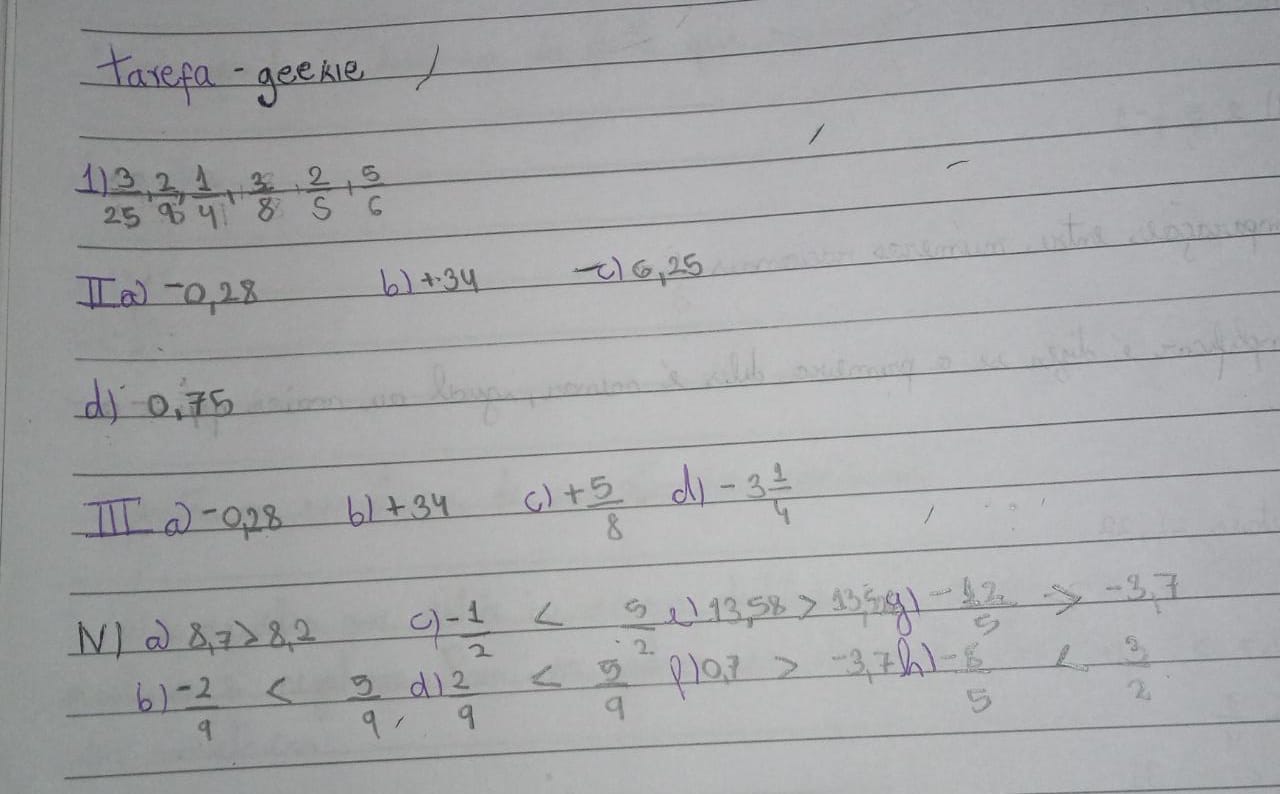 tarefa - geekie
1) 3/25, 2/9, 1/4, 3/8, 2/5, 5/6
II a) -0,28 b) +34 -c) 6,25
d) 0,75
III a) -0,28 b) +34 c) +5/8 d) -3 1/4
IV) a) 8,7 > 8,2 c) -1/2 < 5/2 e) 13,58 > 13,5 g) -12/5 > -3,7
b) -2/9 < 5/9, d) 2/9 < 5/9 f) 0,7 > -3,7 h) -6/5 < 3/2